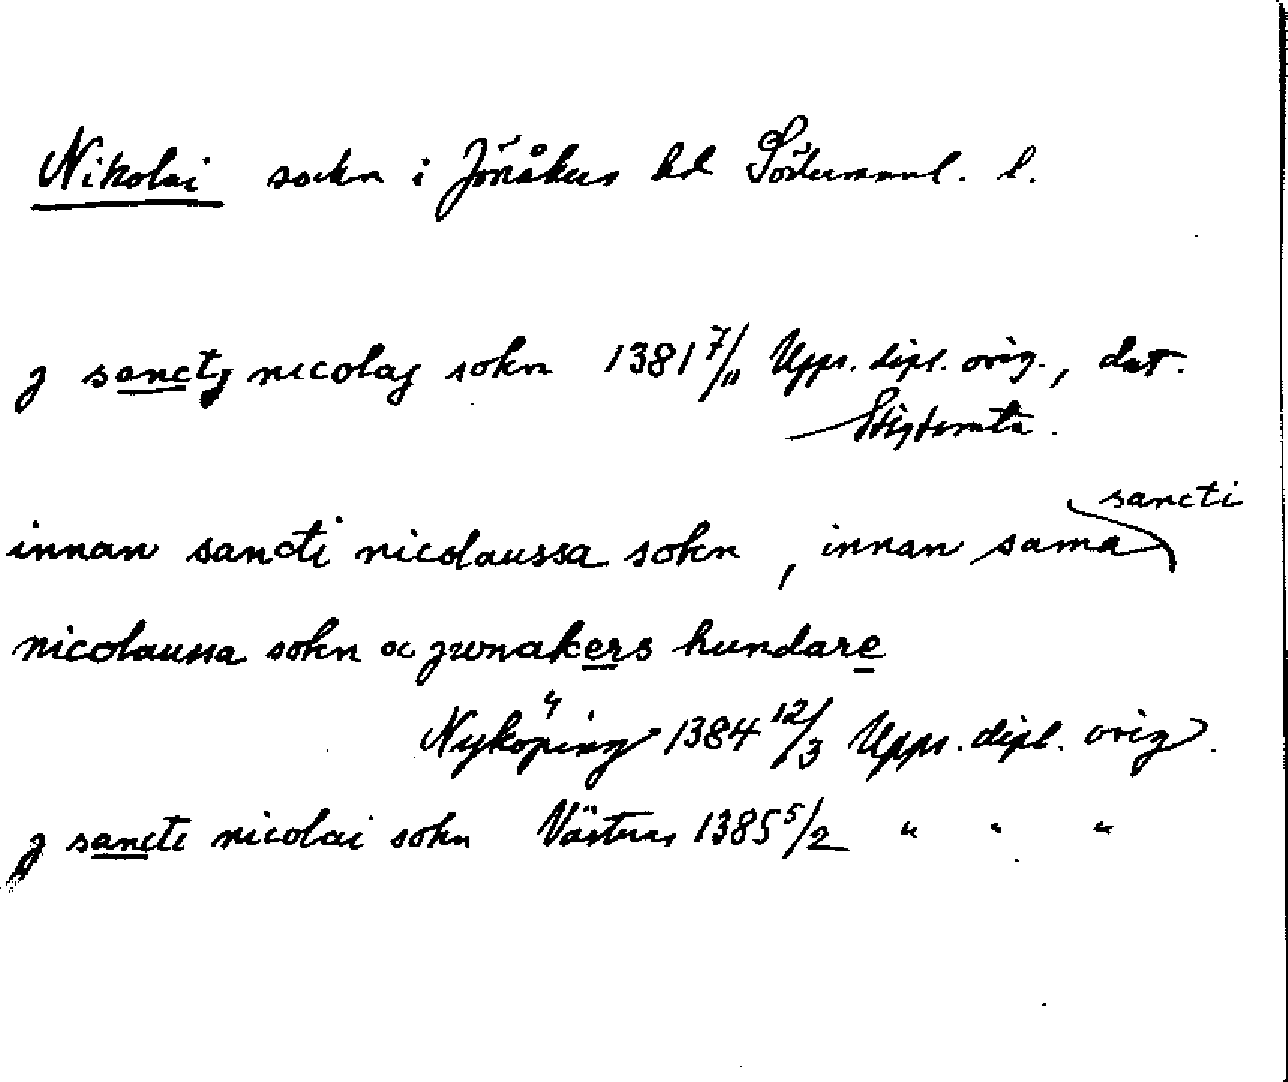 Nikolai sockn i Jönåkers hd Södermanl. l.
j sanctj nicolaj sokn 1381 7/11 Upps. dipl. orig., dat.
Stigtomta.
innan sancti nicolaussa sokn, innan sama sancti
nicolaussa sokn oc jwnakers hundare
Nyköping 1384 12/3 Upps. dipl. orig.
j sancte nicolai sokn Västerås 1385 5/2 " " "